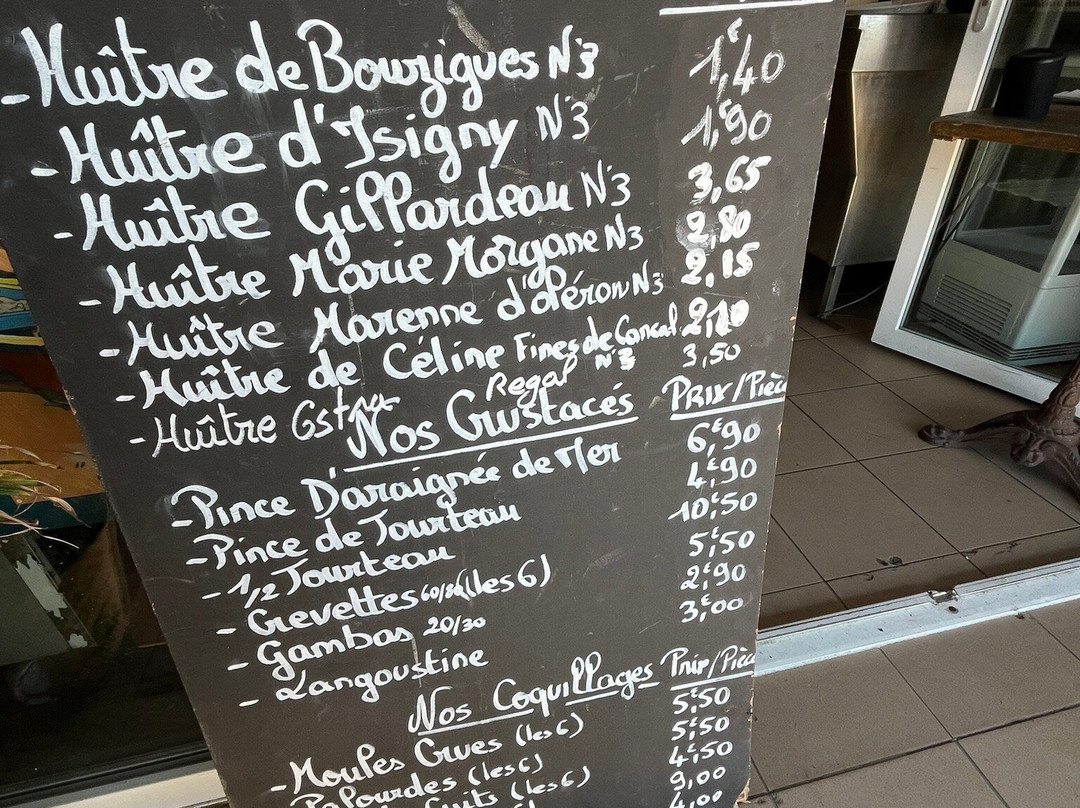 - Huître de Bouzigues N°3 1,€40
- Huître d'Isigny N°3 1,€90
- Huître Gillardeau N°3 3,65
- Huître Marie Morgane N°3 2,80
- Huître Marenne d'oléron N°3 2,15
- Huître de Céline Fines de Cancal N°3
- Huître Gstra Regal 3,50
Nos Crustacés Prix/Pièc
- Pince D'araignée de Mer 6,€90
- Pince de Tourteau 4,€90
- 1/2 Tourteau 10,€50
- Crevettes 60/80 (les 6) 5,€50
- Gambas 20/30 2,€90
- Langoustine 3,€00
Nos Coquillages Prix/Pièc
- Moules Crues (les 6) 5,€50
Palourdes (les 6) 5,€50
(les 6) 4,€50
9,00
4,00